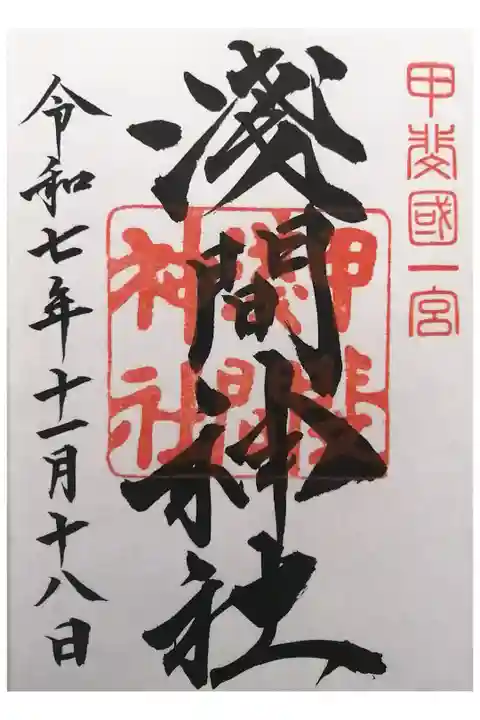 甲斐國一宮
淺間神社
甲斐
淺間
神社
令和七年十一月十八日